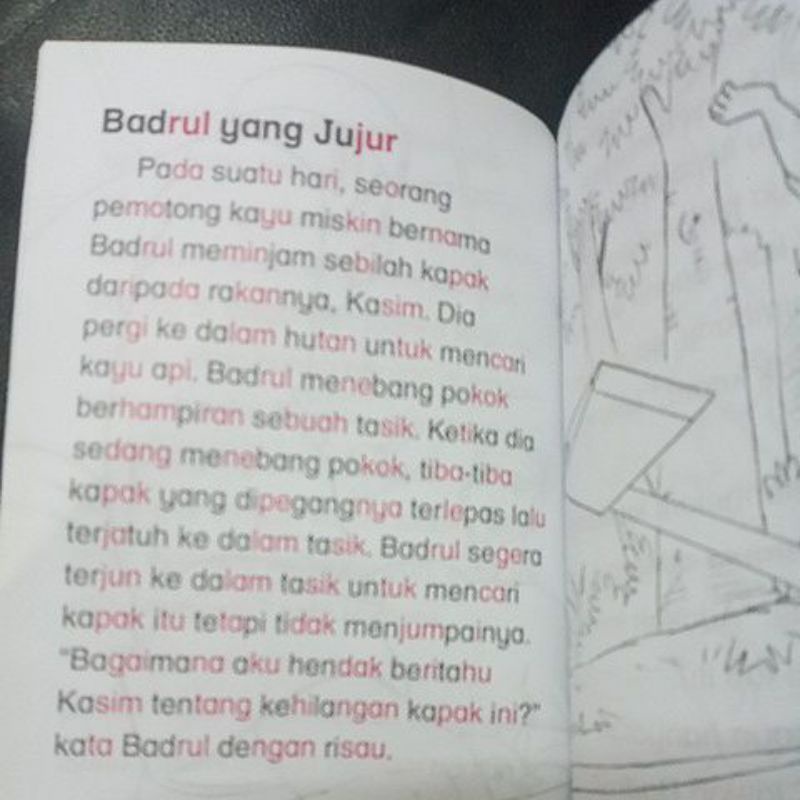 Badrul yang Jujur
Pada suatu hari, seorang
pemotong kayu miskin bernama
Badrul meminjam sebilah kapak
daripada rakannya, Kasim. Dia
pergi ke dalam hutan untuk mencari
kayu api. Badrul menebang pokok
berhampiran sebuah tasik. Ketika dia
sedang menebang pokok, tiba-tiba
kapak yang dipegangnya terlepas lalu
terjatuh ke dalam tasik. Badrul segera
terjun ke dalam tasik untuk mencari
kapak itu tetapi tidak menjumpainya.
"Bagaimana aku hendak beritahu
Kasim tentang kehilangan kapak ini?"
kata Badrul dengan risau.